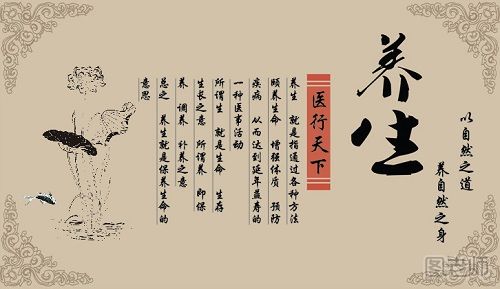 养生
以自然之道
养自然之身
医行天下
养生 就是指通过各种方法
颐养生命 增强体质 预防
疾病 从而达到延年益寿的
一种医事活动
所谓生 就是生命 生存
生长之意 所谓养 即保
养 调养 补养之意
总之 养生就是保养生命的
意思
图老师